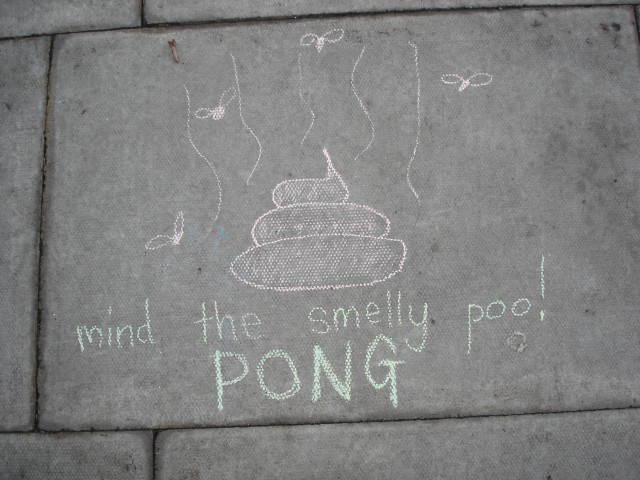 mind the smelly poo!
PONG